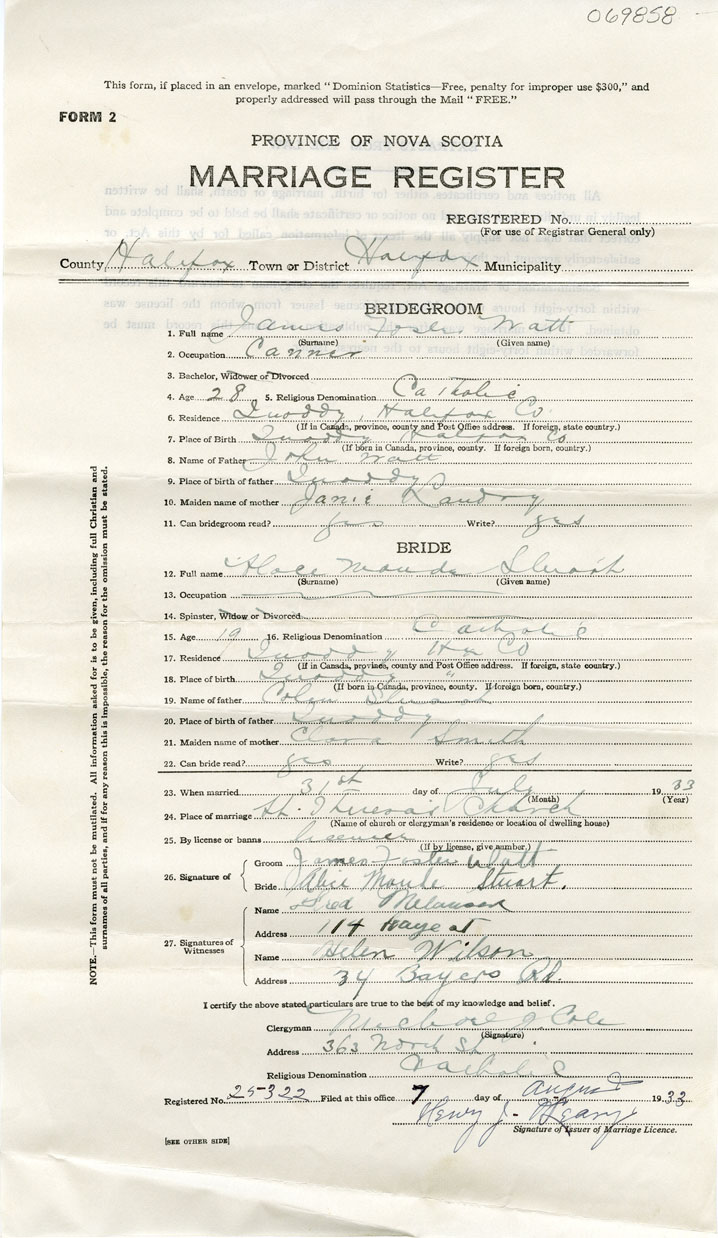 069858
This form, if placed in an envelope, marked "Dominion Statistics—Free, penalty for improper use $300," and
properly addressed will pass through the Mail "FREE."
FORM 2
PROVINCE OF NOVA SCOTIA
MARRIAGE REGISTER
REGISTERED No.
(For use of Registrar General only)
County Halifax Town or District Halifax Municipality
BRIDEGROOM
1. Full name James Foster Watt
(Surname) (Given name)
2. Occupation Canner
3. Bachelor, Widower or Divorced
4. Age 28 5. Religious Denomination Catholic
6. Residence Quoddy, Halifax Co
(If in Canada, province, county and Post Office address. If foreign, state country.)
7. Place of Birth Quoddy Halifax Co
(If born in Canada, province, county. If foreign born, country.)
8. Name of Father John Watt
9. Place of birth of father Quoddy
10. Maiden name of mother Janie Landry
11. Can bridegroom read? yes Write? yes
BRIDE
12. Full name Alace Maude Stuart
(Surname) (Given name)
13. Occupation
14. Spinster, Widow or Divorced
15. Age 19 16. Religious Denomination Catholic
17. Residence Quoddy Hx Co
(If in Canada, province, county and Post Office address. If foreign, state country.)
18. Place of birth Quoddy "
(If born in Canada, province, county. If foreign born, country.)
19. Name of father Colin Stuart
20. Place of birth of father Quoddy
21. Maiden name of mother Clara Smith
22. Can bride read? yes Write? yes
23. When married 31st day of July 1933
(Month) (Year)
24. Place of marriage St. Theresa's Church
(Name of church or clergyman's residence or location of dwelling house)
25. By license or banns license
(If by license, give number.)
26. Signature of
Groom James Foster Watt
Bride Alice Maude Stuart.
27. Signatures of Witnesses
Name Fred Melanson
Address 114 Kaye st
Name Helen Wilson
Address 34 Bayers Rd.
I certify the above stated particulars are true to the best of my knowledge and belief.
Clergyman Michael J. Cole
(Signature)
Address 363 North St.
Religious Denomination Catholic
Registered No. 25322 Filed at this office 7 day of August 1933
Henry J.
Signature of Issuer of Marriage Licence.
[SEE OTHER SIDE]
NOTE.—This form must not be mutilated. All information asked for is to be given, including full Christian and
surnames of all parties, and if for any reason this is impossible, the reason for the omission must be stated.